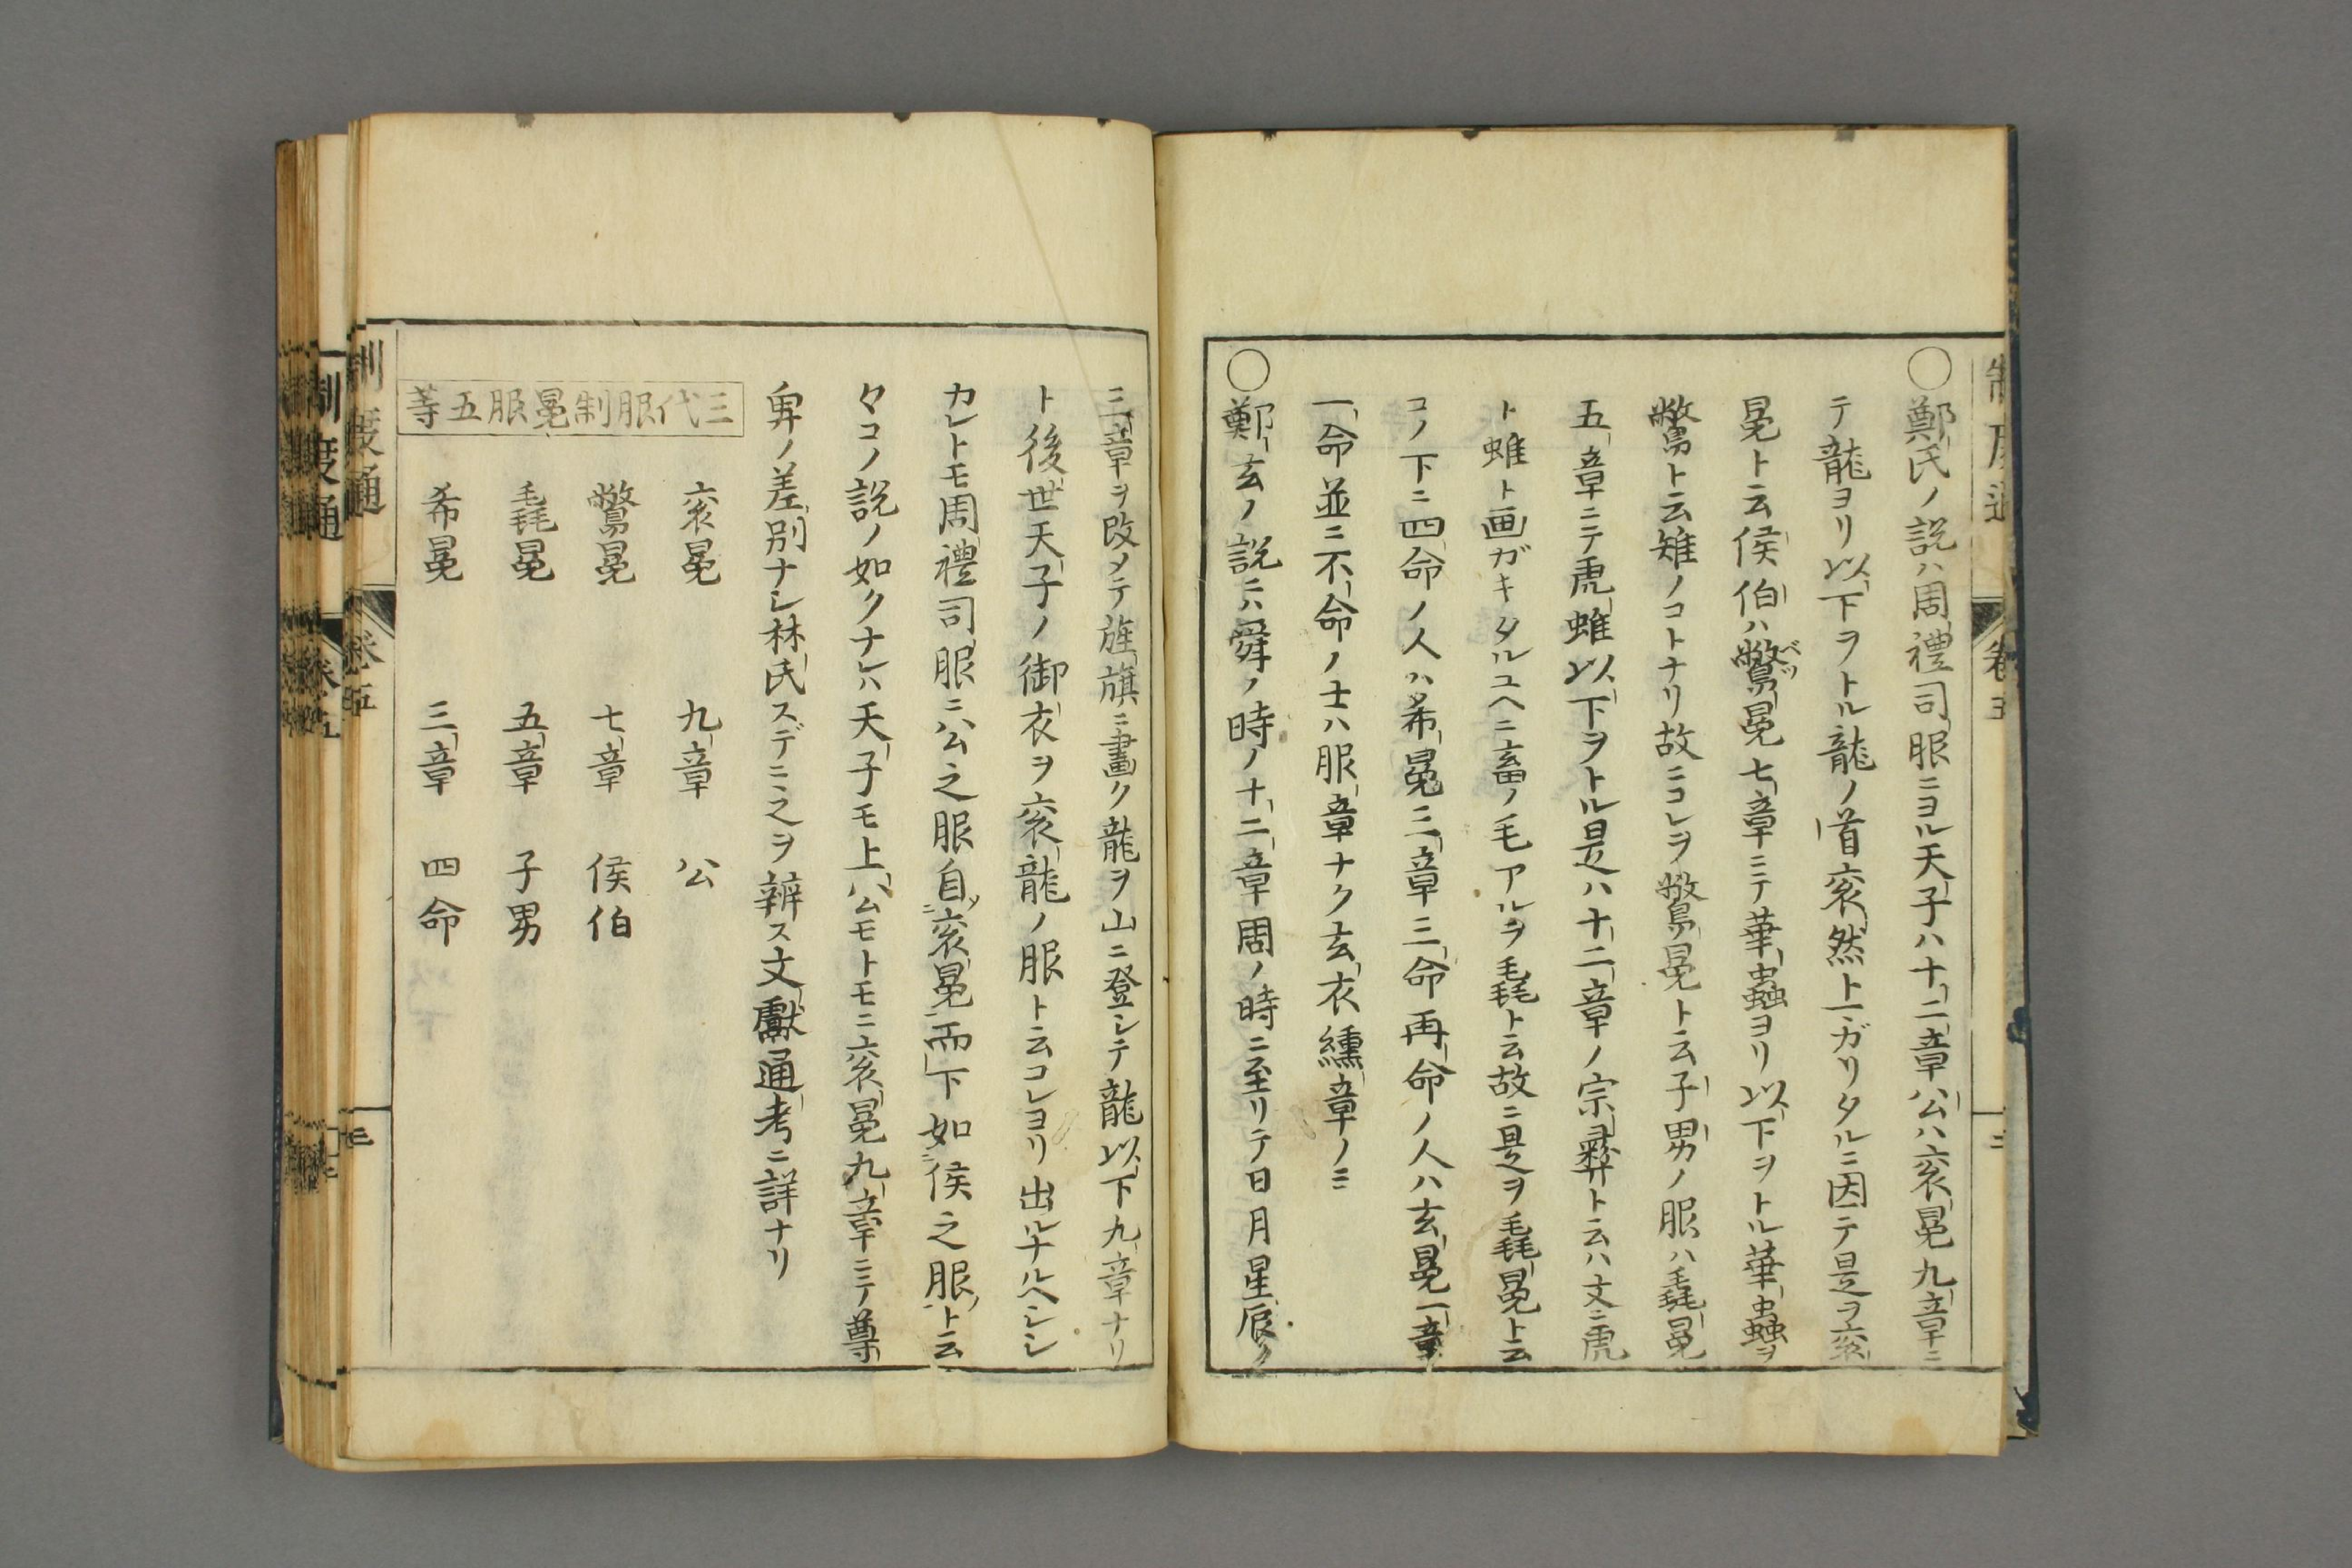 〇鄭氏ノ説ハ周禮司服ニヨル天子ハ十二章公ハ袞冕九章ニ
テ龍ヨリ以下ヲトル龍ノ首袞然ト一ガリタルニ因テ是ヲ袞
冕ト云侯伯ハ鷩冕七章ニテ華蟲ヨリ以下ヲトル華蟲ヲ
鷩ト云雉ノコトナリ故ニコレヲ鷩冕ト云子男ノ服ハ毳冕
五章ニテ虎蜼以下ヲトル是ハ十二章ノ宗彛ト云ハ文ニ虎
ト蜼ト画ガキタルユヘニ畜ノ毛アルヲ毳ト云故ニ是ヲ毳冕ト云
コノ下ニ四命ノ人ハ希冕三章三命再命ノ人ハ玄冕一章
一命並ニ不命ノ士ハ服章ナク玄衣纁章ノミ
〇鄭玄ノ説ニハ舜ノ時ノ十二章周ノ時ニ至リテ日月星辰ノ
制度通
卷五
三
三章ヲ改メテ旌旗ニ畫ク龍ヲ山ニ登シテ龍以下九章ナリ
ト後世天子ノ御衣ヲ袞龍ノ服ト云コレヨリ出ルナルベシシ
カレトモ周禮司服ニ公之服自袞冕而下如侯之服ト云
々コノ説ノ如クナレハ天子モ上公モトモニ袞冕九章ニテ尊
卑ノ差別ナシ林氏スデニ之ヲ辨ス文獻通考ニ詳ナリ
三代服制冕服五等
袞冕 九章 公
鷩冕 七章 侯伯
毳冕 五章 子男
希冕 三章 四命
制度通
卷五
三
制度通
卷五